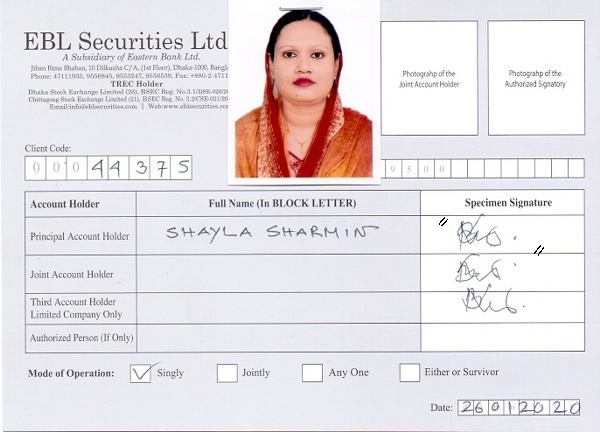 EBL Securities Ltd
A Subsidiary of Eastern Bank Ltd.
Jiban Bima Bhaban, 10 Dilkusha C/A, (1st Floor), Dhaka-1000,
Phone: 47111935, 9556845, 9553247, 9556539, Fax: +880-2-4711
TREC Holder
Dhaka Stock Exchange Limited (26), BSEC Reg. No.3.1/DSE-026/20
Chittagong Stock Exchange Limited (21), BSEC Reg. No. 3.2/CSE-021/20
Email:info@eblsecurities.com | Web:www.eblsecurities.com
Photograhp of the
Joint Account Holder
Photograhp of the
Authorized Signatory
Client Code:
0 0 0 4 4 3 7 5
9 5 0 0
Account Holder Full Name (In BLOCK LETTER) Specimen Signature
Principal Account Holder SHAYLA SHARMIN
Joint Account Holder
Third Account Holder
Limited Company Only
Authorized Person (If Only)
Mode of Operation: Singly Jointly Any One Either or Survivor
Date: 26012020